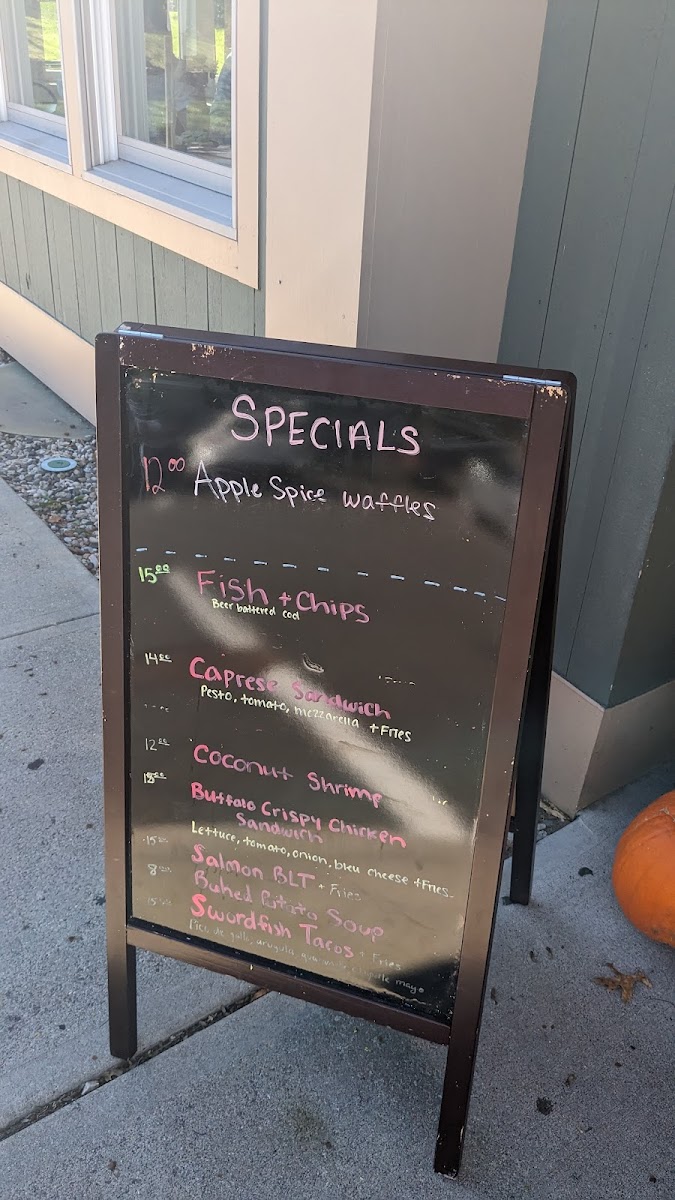 SPECIALS
12.00 Apple Spice waffles
15.00 Fish + Chips
Beer battered cod
14.00 Caprese Sandwich
Pesto, tomato, mozzarella + Fries
12.00 Coconut Shrimp
Buffalo Crispy Chicken
Sandwich
Lettuce, tomato, onion, bleu cheese + Fries
Salmon BLT + Fries
Baked Potato Soup
Swordfish Tacos + Fries
Pico de gallo, arugula, mayo